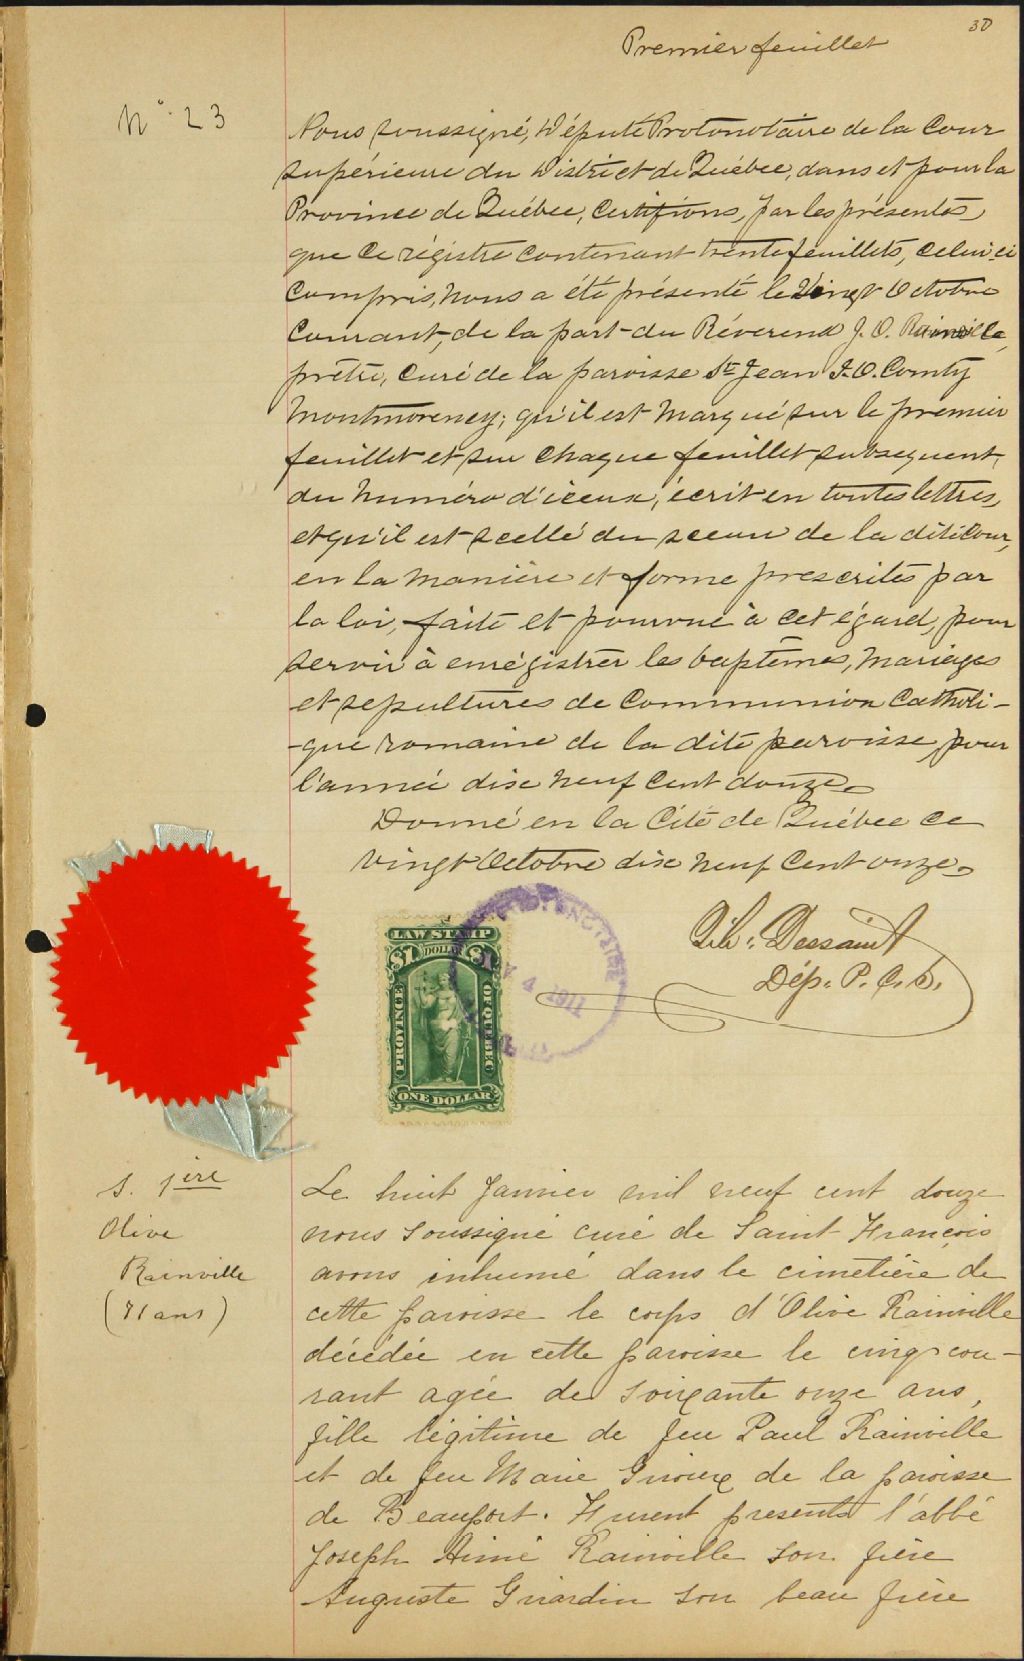 30
Premier feuillet
N° 23
Nous soussigné, Député Protonotaire de la Cour
supérieure du District de Québec, dans et pour la
Province de Québec, certifions, par les présentes,
que ce régistre contenant trente feuillets, celui-ci
compris, nous a été présenté le vingt Octobre
courant, de la part du Révérend J. O. Rainville,
prêtre, curé de la paroisse St Jean I. O. Comty
Montmorency; qu'il est marqué sur le premier
feuillet et sur chaque feuillet subsequent,
du numéro d'iceux, écrit en toutes lettres,
et qu'il est scellé du sceau de la dite Cour,
en la manière et forme prescrites par
la loi, faite et pourvue à cet égard, pour
servir à enrégistrer les baptêmes, mariages
et sepultures de Communion Catholi-
-que romaine de la dite paroisse, pour
l'année dix neuf cent douze.
Donné en la Cité de Québec ce
vingt Octobre dix neuf cent onze.
Dessaint
Dép. P. C. S.
LAW STAMP
$1 DOLLAR $1
PROVINCE OF QUEBEC
ONE DOLLAR
4 1911
S. 1ère
Olive
Rainville
(71 ans)
Le huit Janvier mil neuf cent douze
nous soussigné curé de Saint François
avons inhumé dans le cimetière de
cette paroisse le corps d'Olive Rainville
décédée en cette paroisse le cinq cou-
rant agée de soixante onze ans,
fille légitime de feu Paul Rainville
et de feu Marie Giroux de la paroisse
de Beauport. Furent presents l'abbé
Joseph Aimé Rainville son frère
Auguste Girardin son beau frère